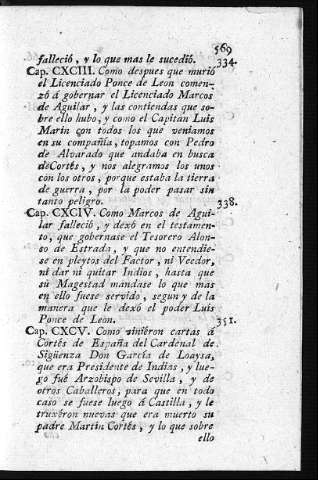 569
falleció, y lo que mas le sucedió. 334.
Cap. CXCIII. Como despues que murió
el Licenciado Ponce de Leon comen-
zó á gobernar el Licenciado Marcos
de Aguilar, y las contiendas que so-
bre ello hubo, y como el Capitan Luis
Marin con todos los que veniamos
en su compañia, topamos con Pedro
de Alvarado que andaba en busca
de Cortés, y nos alegramos los unos
con los otros, porque estaba la tierra
de guerra, por la poder pasar sin
tanto peligro. 338.
Cap. CXCIV. Como Marcos de Agui-
lar falleció, y dexó en el testamen-
to, que gobernase el Tesorero Alon-
so de Estrada, y que no entendie-
se en pleytos del Factor, ni Veedor,
ni dar ni quitar Indios, hasta que
su Magestad mandase lo que mas
en ello fuese servido, segun y de la
manera que le dexó el poder Luis
Ponce de Leon. 351.
Cap. CXCV. Como viniéron cartas á
Cortés de España del Cardenal de
Sigüenza Don García de Loaysa,
que era Presidente de Indias, y lue-
go fué Arzobispo de Sevilla, y de
otros Caballeros, para que en todo
caso se fuese luego á Castilla, y le
truxéron nuevas que era muerto su
padre Martin Cortés, y lo que sobre
ello